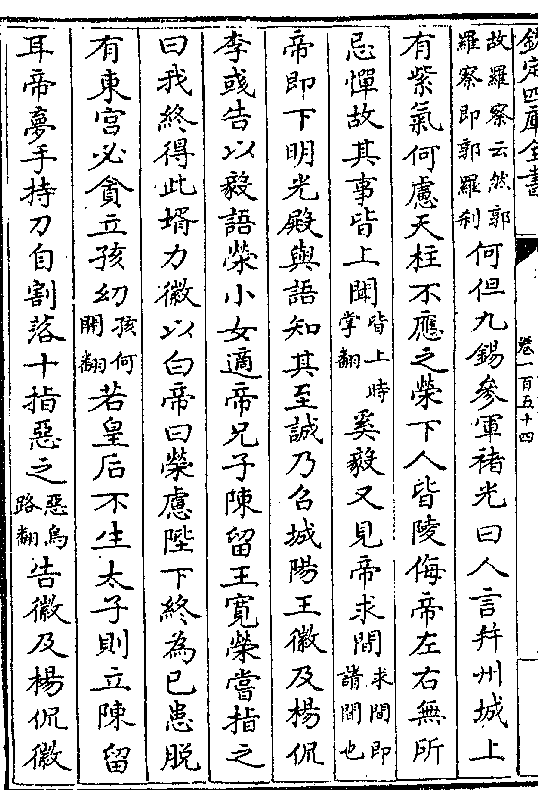 欽定四庫全書
卷一百五十四
故羅察云然郭
羅察即郭羅利
何但九錫參軍褚光曰人言并州城上
有紫氣何慮天柱不應之榮下人皆陵侮帝左右無所
忌憚故其事皆上聞
皆上時
掌翻
奚毅又見帝求間
求間即
請間也
帝即下明光殿與語知其至誠乃召城陽王徽及楊侃
李彧告以毅語榮小女適帝兄子陳留王寛榮嘗指之
曰我終得此壻力徽以白帝曰榮慮陛下終為已患脱
有東宮必貪立孩幼
孩何
開翻
若皇后不生太子則立陳留
耳帝夢手持刀自割落十指惡之
惡烏
路翻
告徽及楊侃徽